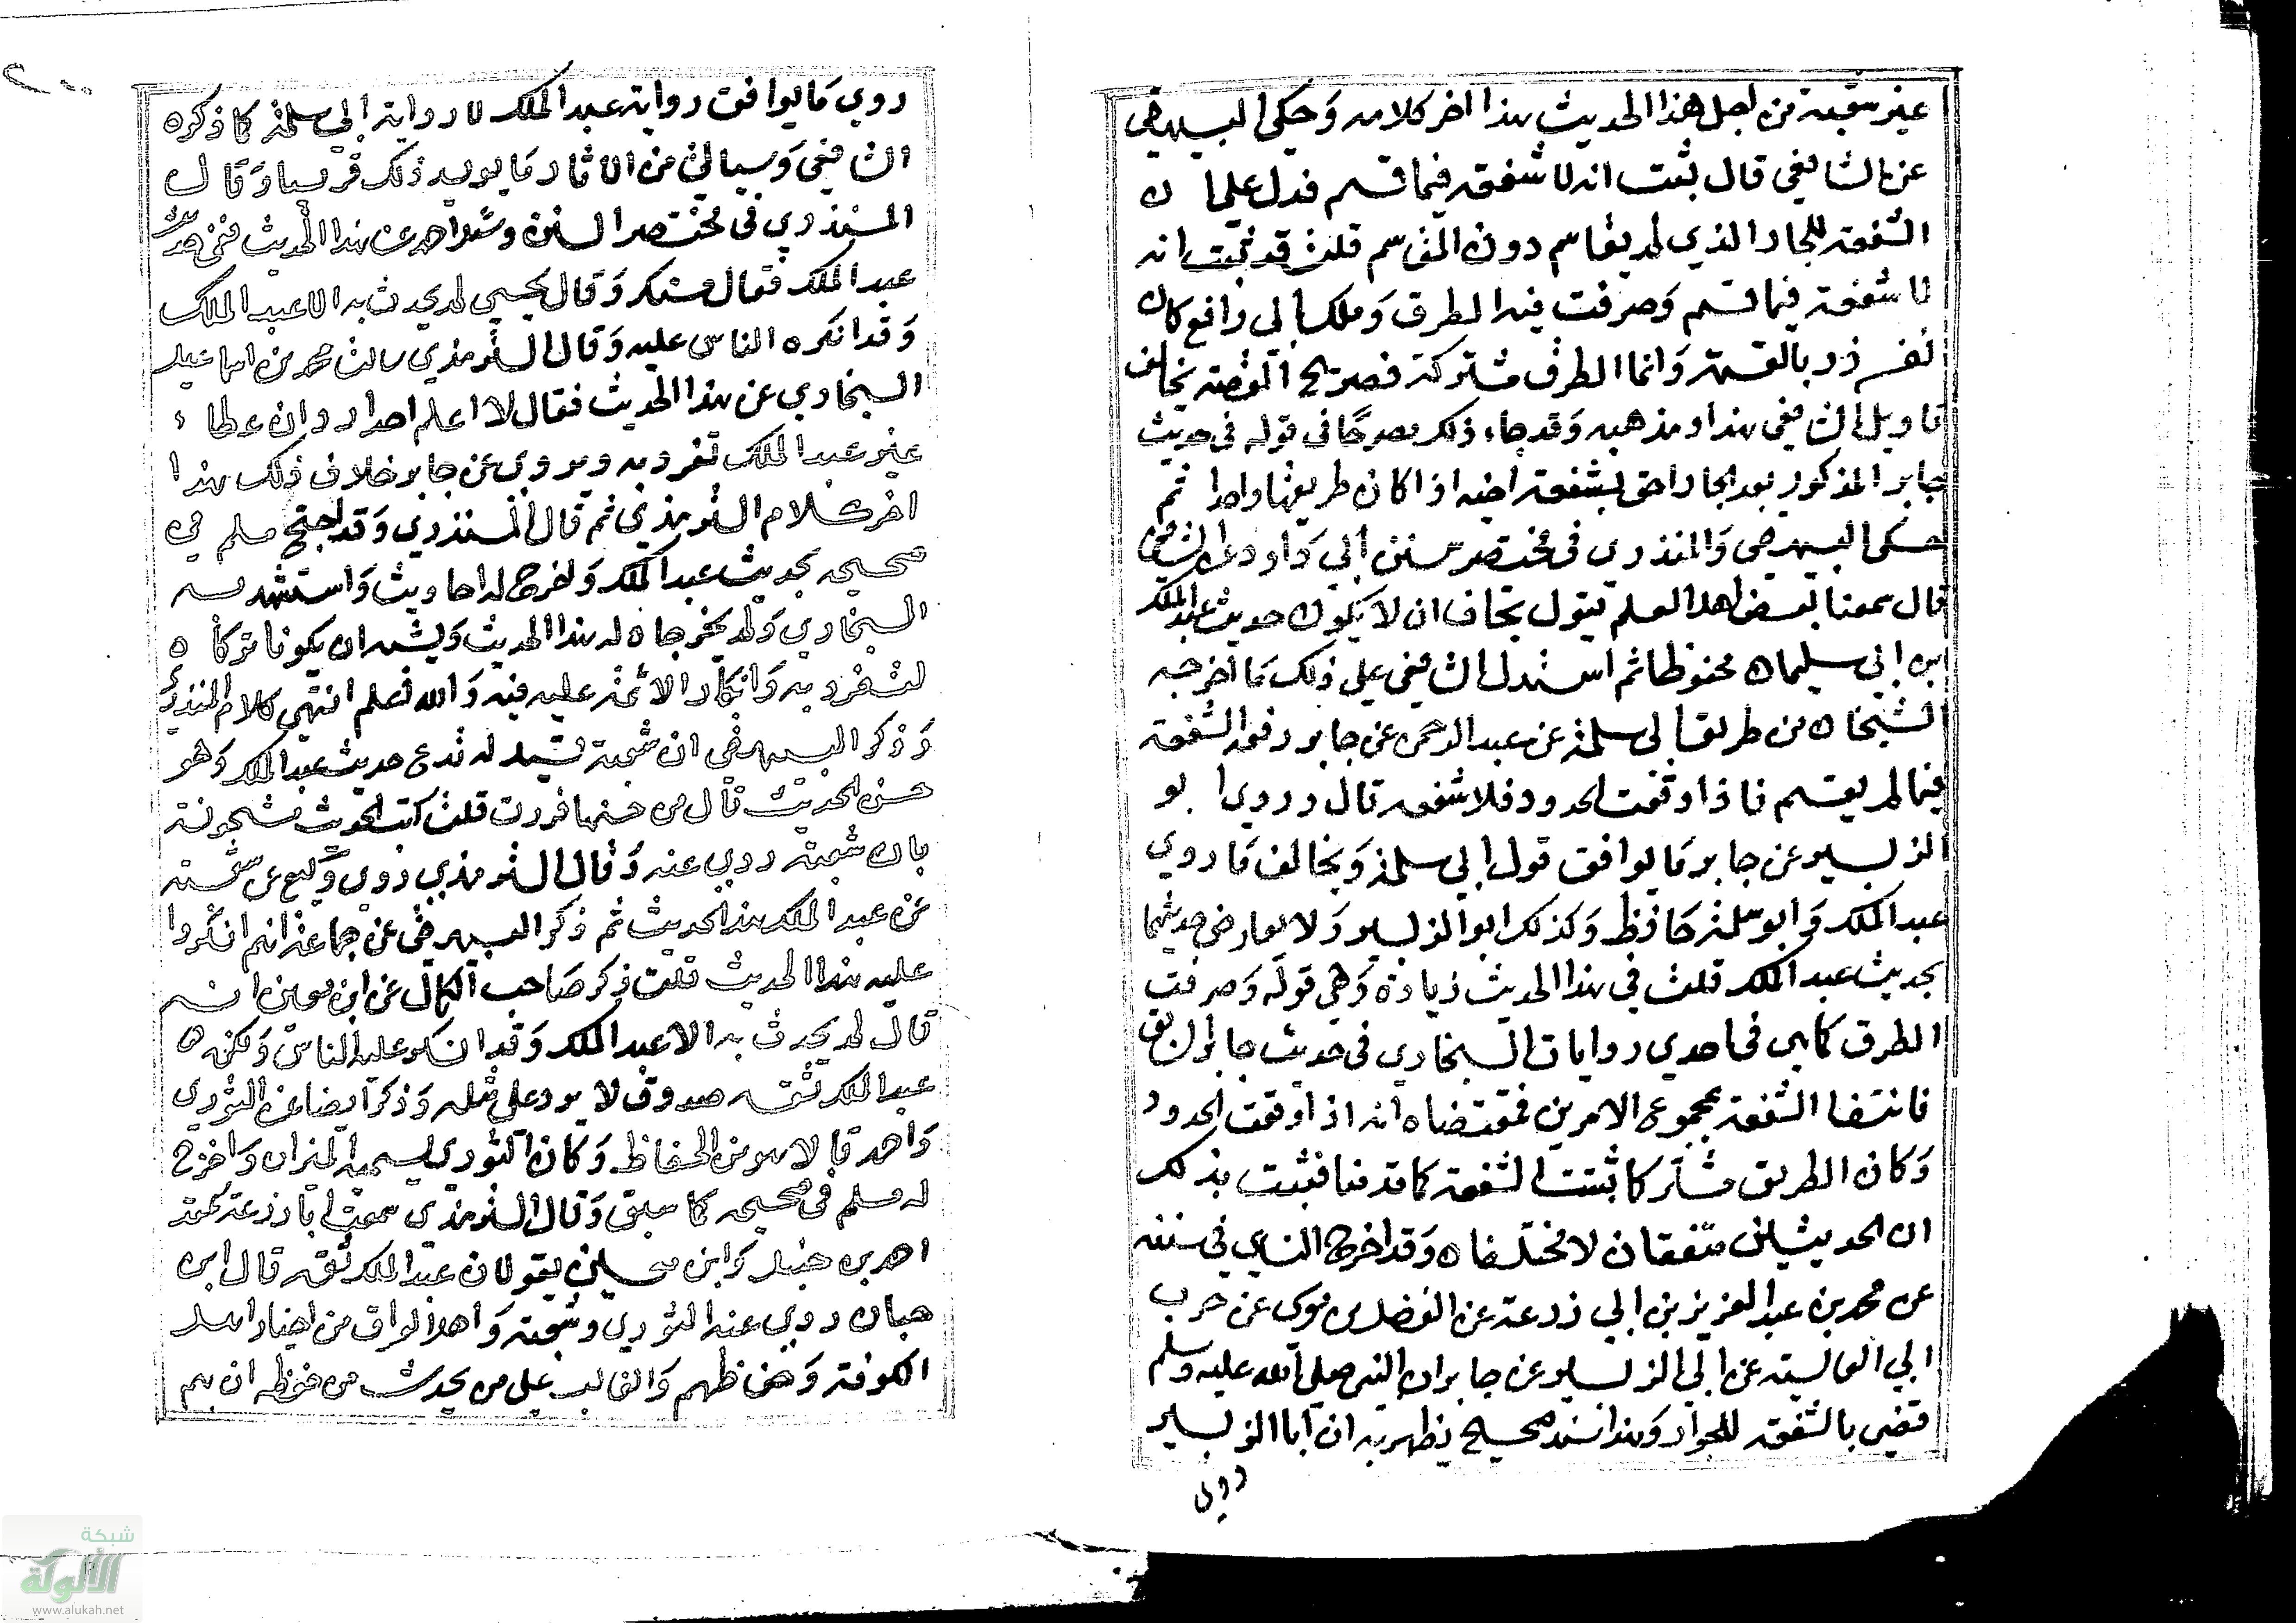 غير شعبة من اجل هذا الحديث هذا اخر كلامه وحكى البيهقي
عن الشافعي قال ثبت انه لا شفعة فيما قسم فدل على ان
الشفعة للجار الذي لم يقاسم دون المقاسم قلت قد ثبت انه
لا شفعة فيما قسم وصرفت فيه الطرق وملك ابي رافع كان
مفروز بالقسمة وانما الطرق مشتركة فصريح القصة يخالف
تاويل الشافعي هذا ومذهبه وقد جاء ذلك مصرحا في قوله في حديث
جابر المذكور بعد الجار احق بشفعة اخيه اذا كان طريقهما واحدا ثم
حكى البيهقي والمنذري في مختصر سنن ابي داود عن الشافعي
قال سمعنا بعض اهل العلم يقول نخاف ان لا يكون حديث عبد الملك
ابن ابي سليمان محفوظا ثم استدل الشافعي على ذلك بما اخرجه
الشيخان من طريق ابي سلمة عن عبد الرحمن عن جابر رفعه الشفعة
فيما لم يقسم فاذا وقعت الحدود فلا شفعة قال وروى ابو
الزبير عن جابر ما يوافق قول ابي سلمة ويخالف ما روى
عبد الملك وابو سلمة حافظ وكذلك ابو الزبير ولا يعارض حديثهما
بحديث عبد الملك قلت في هذا الحديث زيادة وهي قوله وصرفت
الطرق كما هي في احدى روايات البخاري في حديث جابر السابق
فانتفا الشفعة بمجموع الامرين فمقتضاه انه اذا وقعت الحدود
وكان الطريق مشتركا ثبتت الشفعة كما قدمنا فثبت بذلك
ان الحديثين متفقان لا مختلفان وقد اخرج النساي في سننه
عن محمد بن عبد العزيز بن ابي زرعة عن الفضل بن موسى عن حرب
ابي العالية عن ابي الزبير عن جابر ان النبي صلى الله عليه وسلم
قضى بالشفعة للجوار وهذا سند صحيح يظهر به ان ابا الزبير
روى
روى ما يوافق رواية عبد الملك لا رواية ابي سلمة كما ذكره
الشافعي وسياتي من الاثار ما يويد ذلك قريبا وقال
المنذري في مختصر السنن وسئل احمد عن هذا الحديث
عبد الملك فقال منكر وقال يحيى لم يحدث به الا عبد الملك
وقد انكره الناس عليه وقال الترمذي سالت محمد بن اسماعيل
البخاري عن هذا الحديث فقال لا اعلم احدا رواه عن عطاء
غير عبد الملك تفرد به ويروى عن جابر خلاف ذلك هذا
اخر كلام الترمذي ثم قال المنذري وقد احتج مسلم في
صحيحه بحديث عبد الملك واخرج له احاديث واستشهد به
البخاري ولم يخرجا له هذا الحديث ويشبه ان يكونا تركاه
لتفرده به وانكار الائمة عليه فيه والله اعلم انتهى كلام المنذري
وذكر البيهقي ان شعبة قيل له تدع حديث عبد الملك وهو
حسن الحديث قال من حسنها فررت قلت كتب الحديث مشحونة
بان شعبة روى عنه وقال الترمذي روى وكيع عن شعبة
عن عبد الملك هذا الحديث ثم ذكر البيهقي عن جماعة انهم انكروا
عليه هذا الحديث قلت ذكر صاحب الكمال عن ابن معين انه
قال لم يحدث به الا عبد الملك وقد انكره عليه الناس ولكن
عبد الملك ثقة صدوق لا يرد على مثله وذكر ايضا عن الثوري
واحمد قالا هو من الحفاظ وكان الثوري يسميه الميزان واخرج
له مسلم في صحيحه كما سبق وقال الترمذي سمعت ابا زرعة
احمد بن حنبل وابن معين يقولان عبد الملك ثقة قال ابن
حبان روى عنه الثوري وشعبة واهل العراق من اخيار اهل
الكوفة وحفاظهم والغالب على من يحدث من حفظه ان يهم
شبكة
الألوكة
www.alukah.net